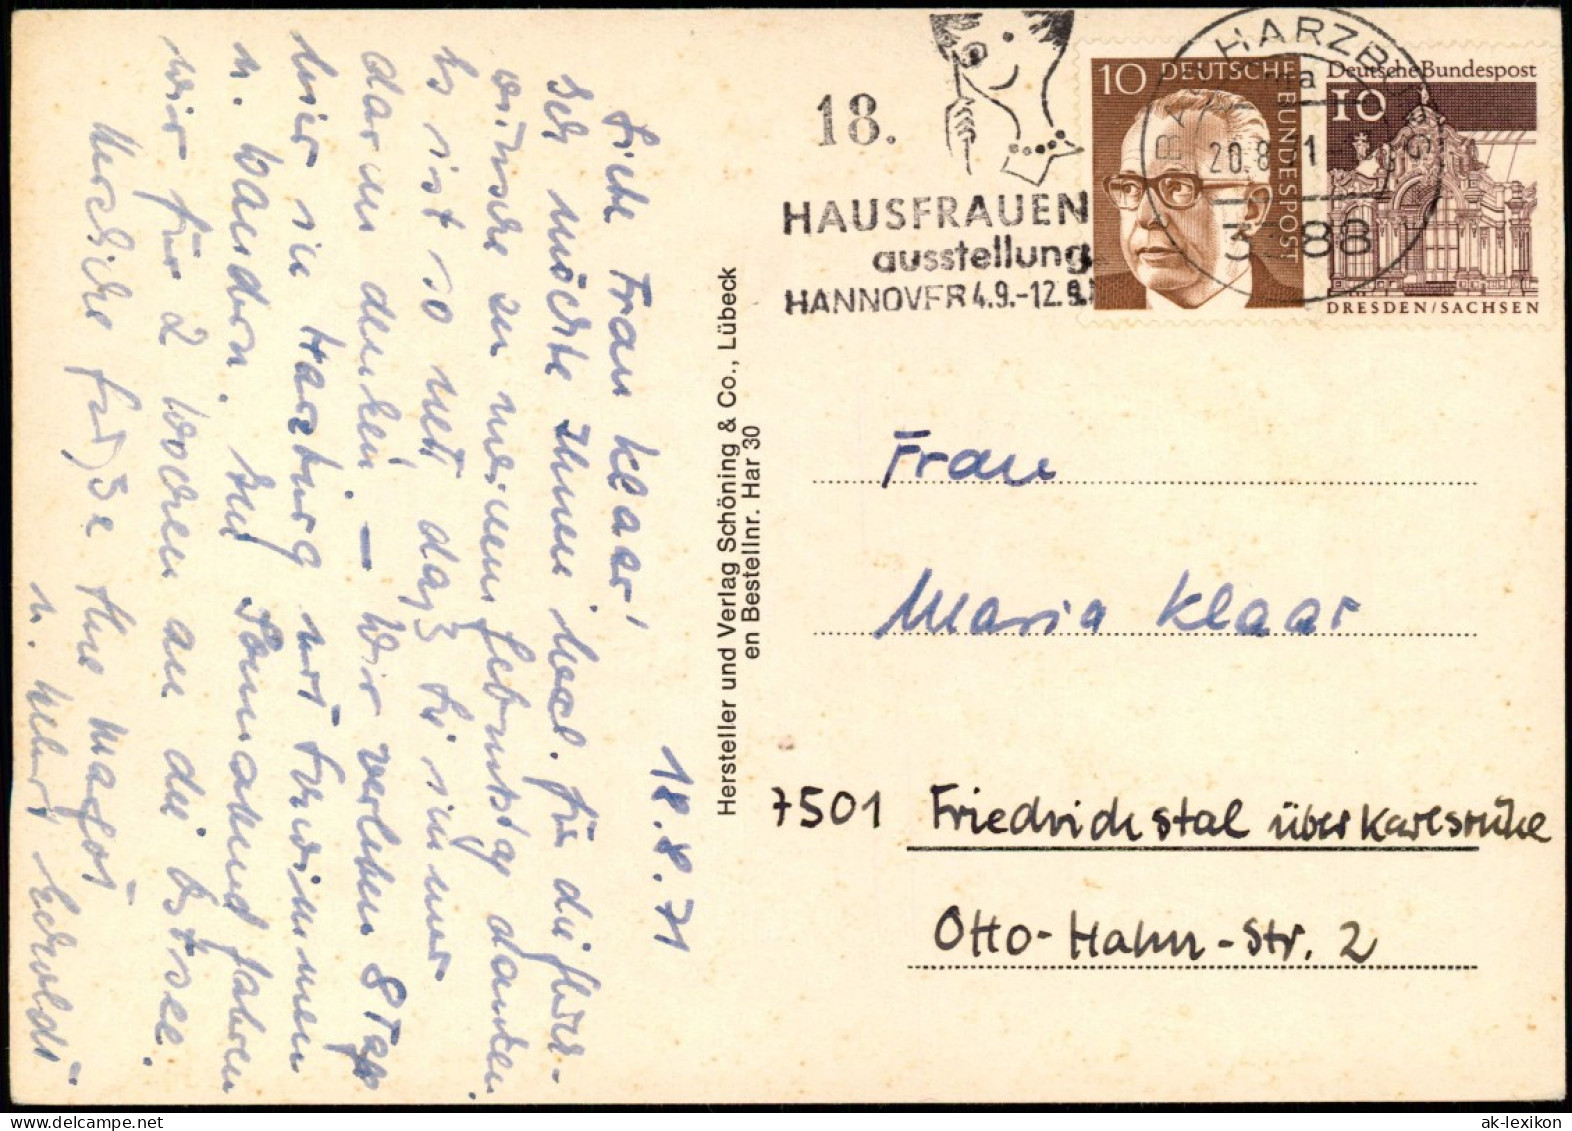 18.8.71
Liebe Frau Klaar!
Ich möchte Ihnen herzl. für die Glück-
wünsche zu meinem Geburtstag danken.
Es ist so nett daß Sie immer
daran denken. – Wir verleben 8 Tage
hier in Harzburg mit Schwimmen
u. Wandern. Am Sonnabend fahren
wir für 2 Wochen an die Ostsee.
Herzliche Grüße Ihre
u.
Hersteller und Verlag Schöning & Co., Lübeck
en Bestellnr. Har 30
18.
HAUSFRAUEN
ausstellung
HANNOVER 4.9.-12.9.
HARZB
a
20.8.71
3388
10 DEUTSCHE
BUNDESPOST
Deutsche Bundespost
10
DRESDEN/SACHSEN
Frau
Maria Klaar
7501 Friedrichstal über Karlsruhe
Otto-Hahn-Str. 2
ak-lexikon